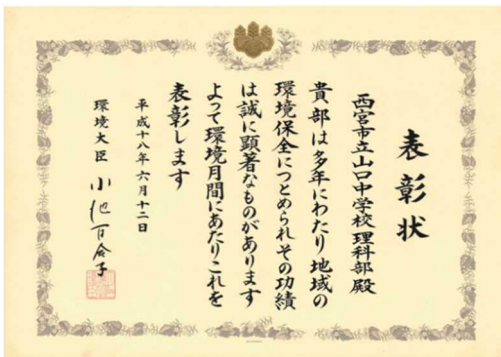 表彰状
西宮市立山口中学校理科部殿
貴部は多年にわたり地域の
環境保全につとめられその功績
は誠に顕著なものがあります
よって環境月間にあたりこれを
表彰します
平成十八年六月十二日
環境大臣 小池百合子